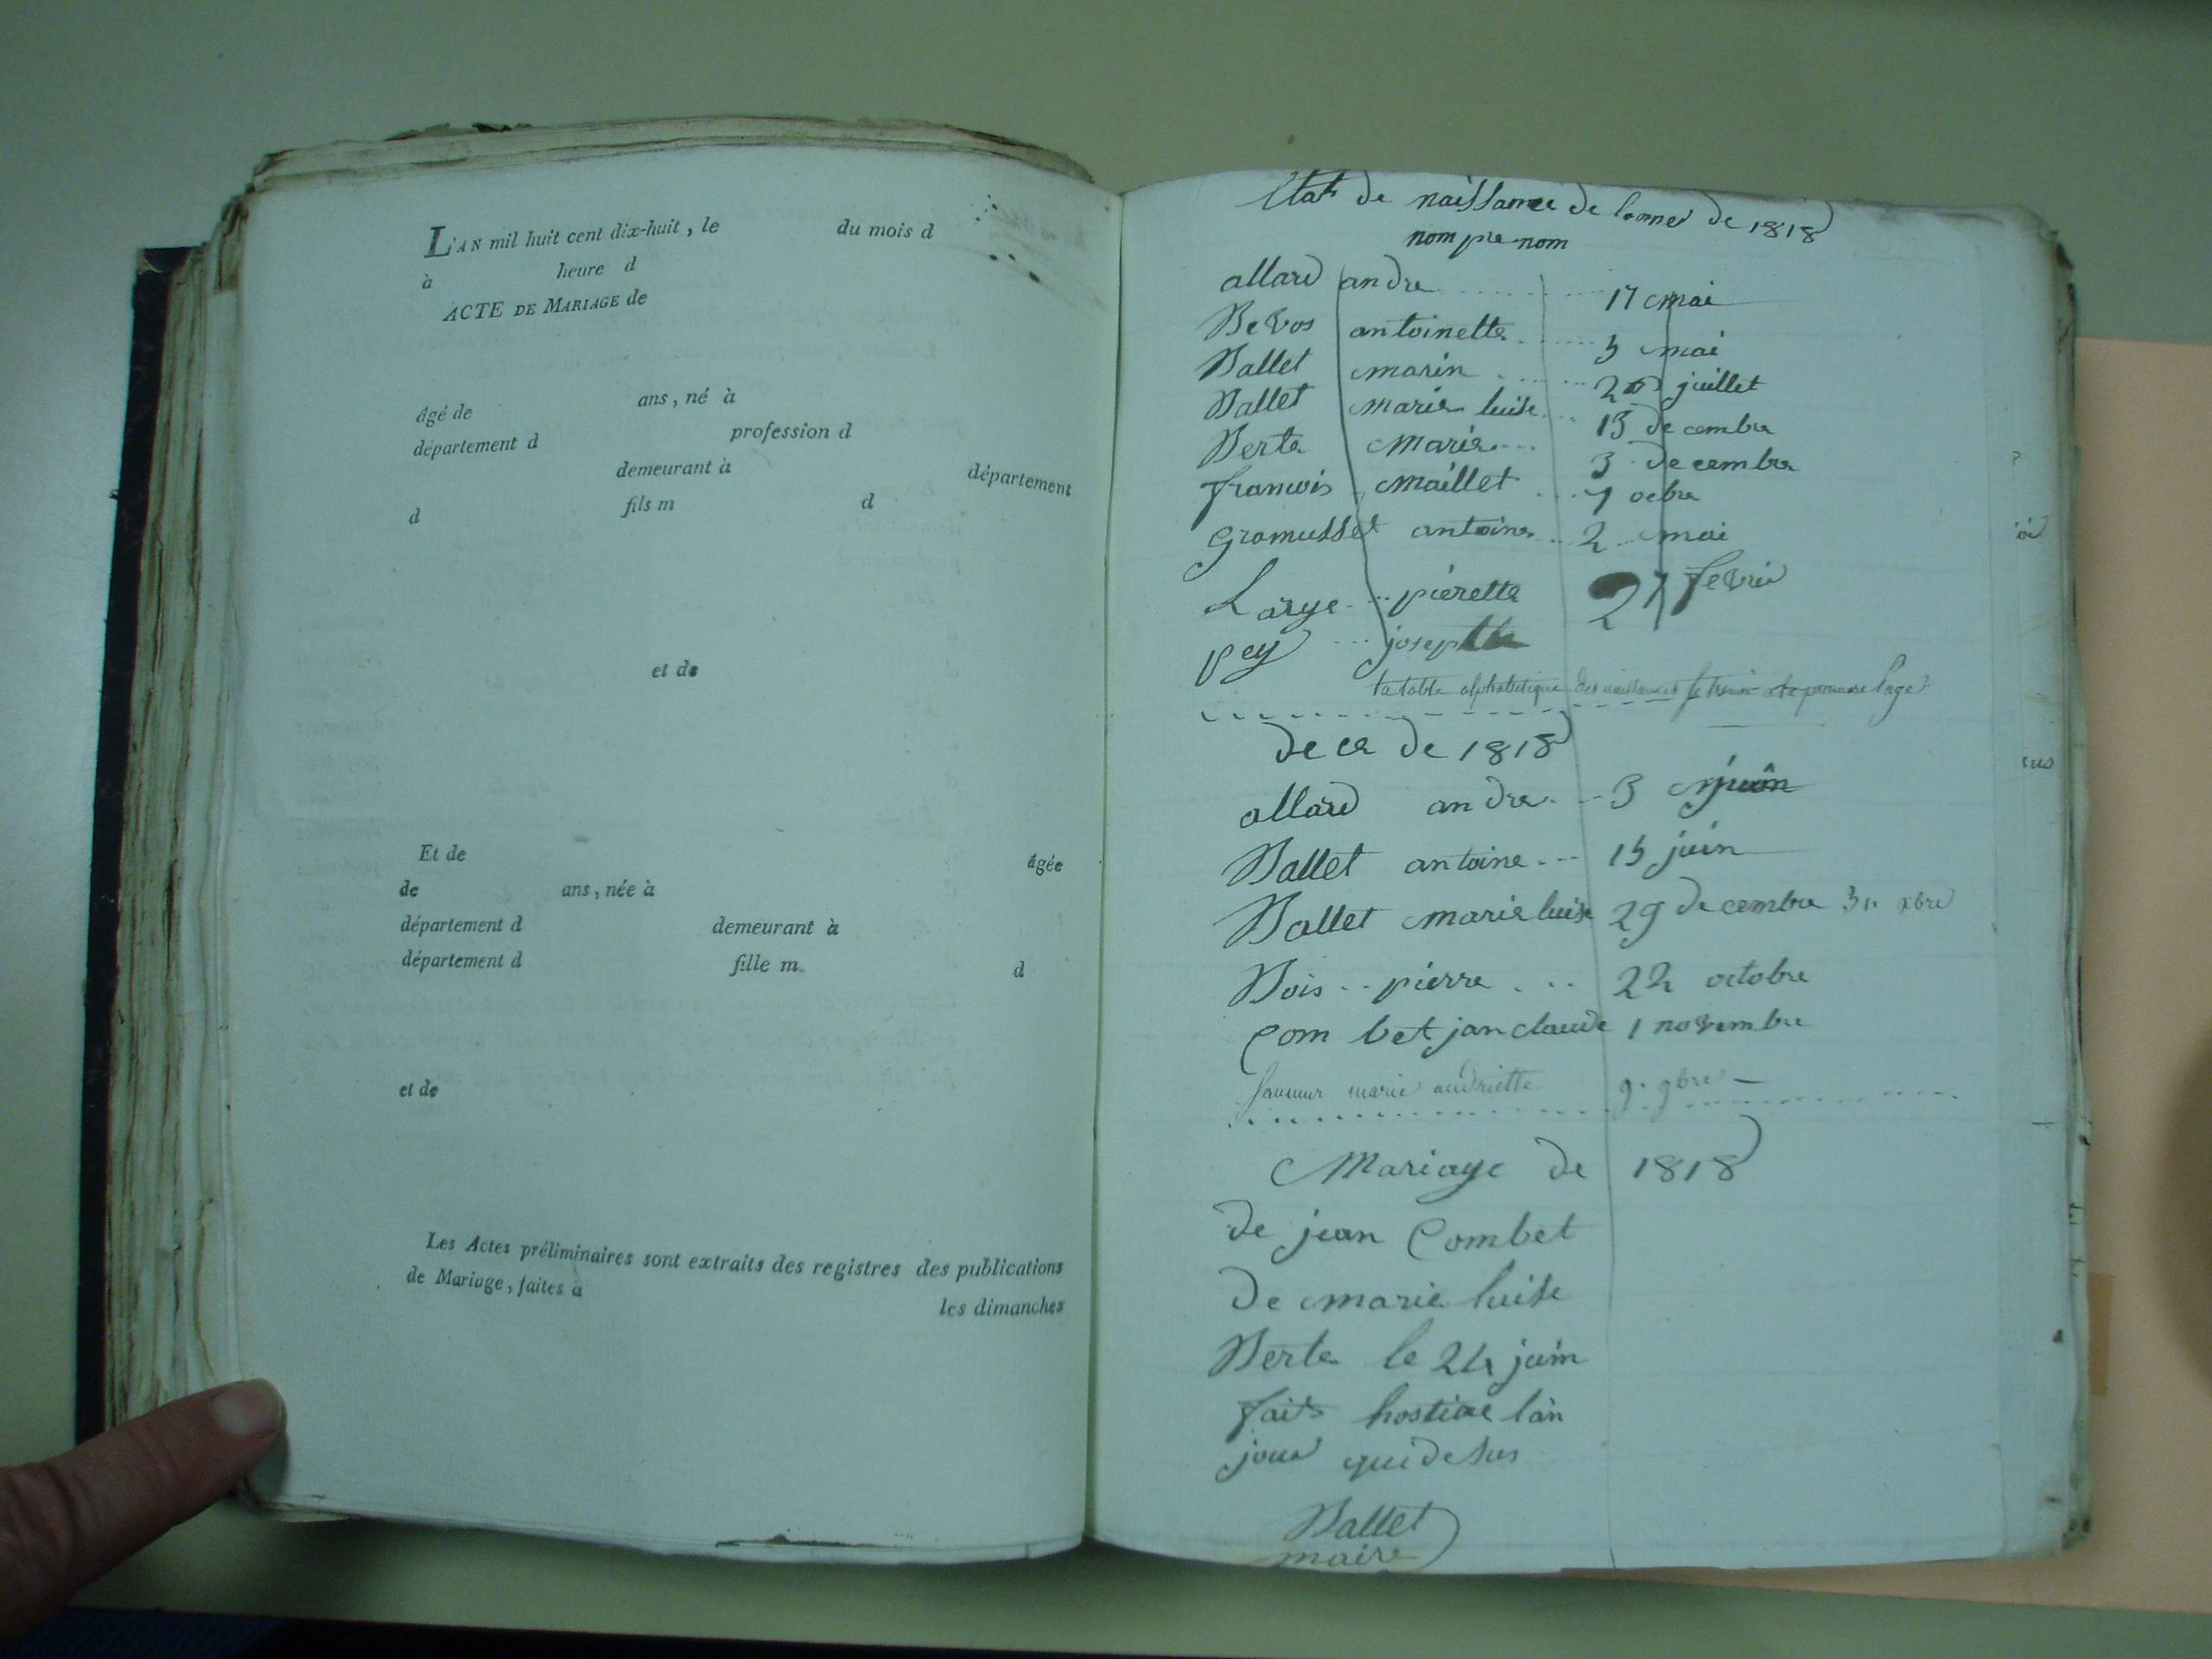 L'AN mil huit cent dix-huit, le du mois d
à heure d
ACTE DE MARIAGE de
âgé de ans, né à
département d profession d
demeurant à département
d fils m d
et de
Et de âgée
de ans, née à
département d demeurant à
département d fille m. d
et de
Les Actes préliminaires sont extraits des registres des publications
de Mariage, faites à les dimanches
Etat de naissance de lannee de 1818
nom prenom
allard andre 17 mai
Bevos antoinette 5 mai
Ballet marin juillet
Ballet marie luise 13 decembre
Berte marie 3 decembre
francois maillet 7 ocbre
gromusset antoine 2 mai
Large pierette 27 fevrie
pey joseph
la table alphabetique des naissances se trouve a la premiere page
dece de 1818
allard andre 3 juin
Ballet antoine 15 juin
Ballet marie luise 29 decembre 31 xbre
Bois pierre 22 octobre
Combet jan claude 1 novembre
marie andriette 9. 9bre
Mariage de 1818
de jean Combet
de marie luise
Berte le 24 juin
fait hostiae lan
jour quidesus
Ballet
maire